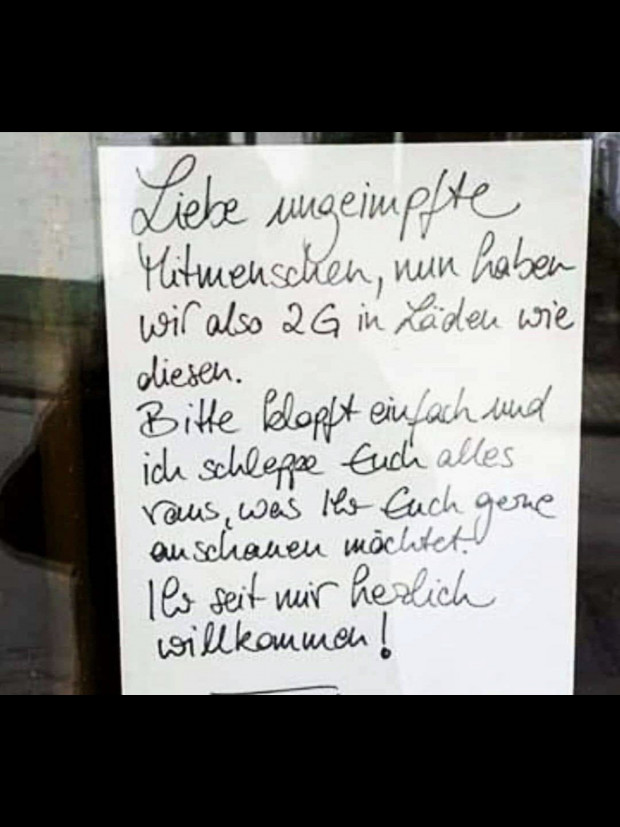 Liebe ungeimpfte
Mitmenschen, nun haben
wir also 2G in Läden wie
diesen.
Bitte klopft einfach und
ich schleppe Euch alles
raus, was Ihr Euch gerne
anschauen möchtet.
Ihr seit mir herzlich
willkommen!